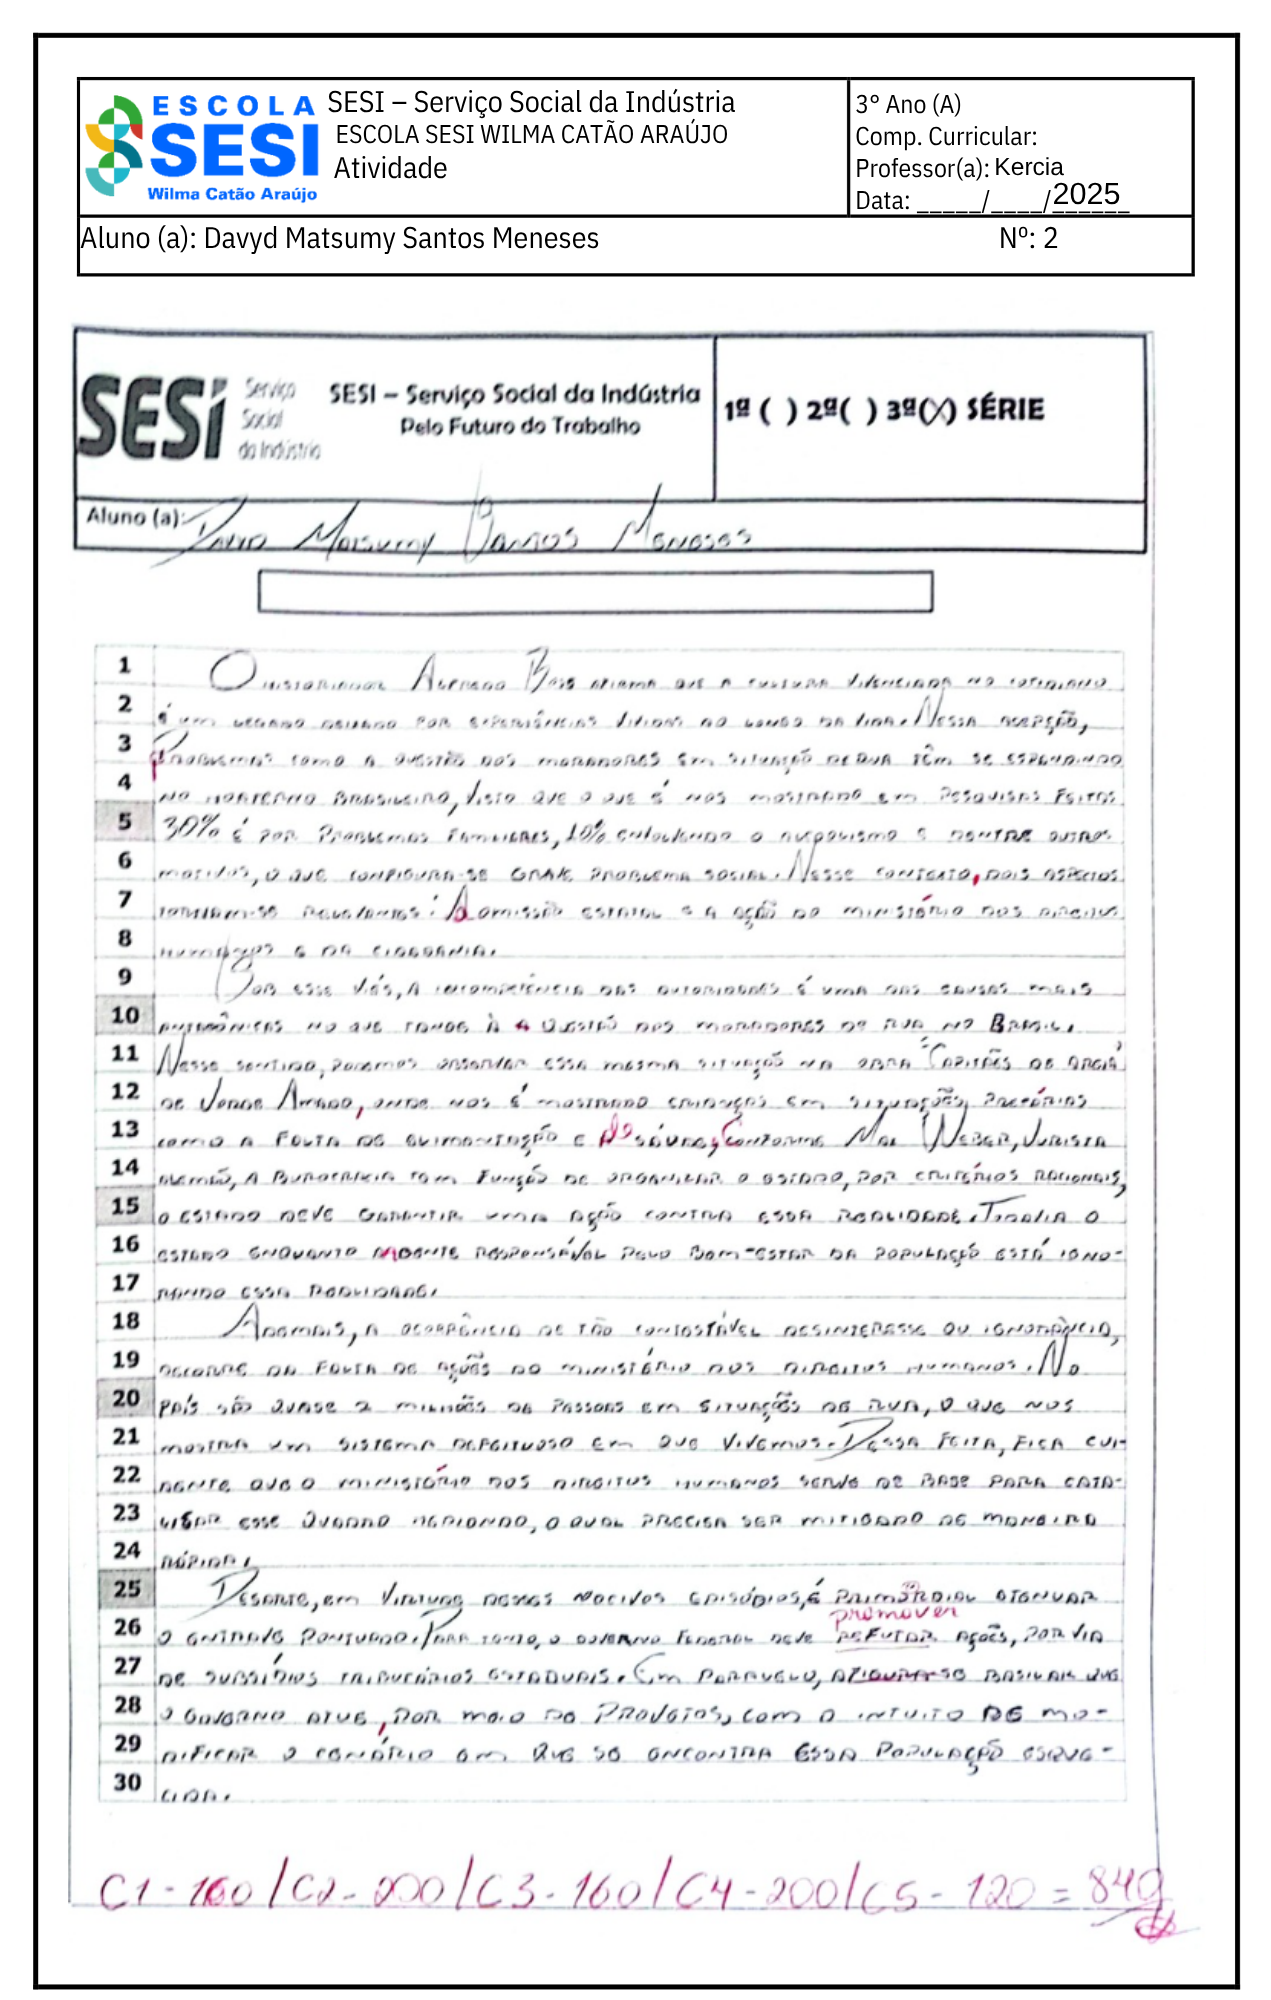 ESCOLA
SESI
Wilma Catão Araújo
SESI – Serviço Social da Indústria
ESCOLA SESI WILMA CATÃO ARAÚJO
Atividade
3° Ano (A)
Comp. Curricular:
Professor(a): Kercia
Data: _____/____/2025
Aluno (a): Davyd Matsumy Santos Meneses Nº: 2
SESI Serviço Social da Indústria
SESI – Serviço Social da Indústria
Pelo Futuro do Trabalho
1ª ( ) 2ª( ) 3ª(X) SÉRIE
Aluno (a): Davyd Matsumy Santos Meneses
1 O historiador Alfredo Bosi afirma que a cultura vivenciada no cotidiano
2 é um legado deixado por experiências vividas ao longo da vida. Nessa acepção,
3 problemas como a questão dos moradores em situação de rua têm se expandindo
4 no brasileiro, visto que o que é nos mostrado em pesquisas feitas
5 30% é por problemas familiares, 10% o e dentre outros
6 motivos, o que configura-se grave problema social. Nesse contexto, dois aspectos
7 tornam-se relevantes: A omissão estatal e a ação do ministério dos direitos
8 humanos e da cidadania.
9 Por esse viés, a incompetência das autoridades é uma das causas mais
10 no que tange à a questão dos moradores de rua no Brasil.
11 Nesse sentido, podemos observar essa mesma situação na obra "Capitães de areia"
12 de Jorge Amado, onde nos é mostrado crianças em situações precárias
13 como a falta de alimentação e de saúde, Conforme Max Weber, jurista
14 alemão, a burocracia tem função de organizar o estado, por critérios racionais,
15 o estado deve garantir uma ação contra essa realidade. Todavia o
16 estado enquanto agente responsável pelo bem-estar da população está igno-
17 rando essa realidade.
18 Ademais, a ocorrência de tão contestável desinteresse ou ignorância,
19 decorre da falta de ações do ministério dos direitos humanos. No
20 país são quase 2 milhões de pessoas em situações de rua, o que nos
21 mostra um sistema defeituoso em que vivemos. Dessa feita, fica evi-
22 dente que o ministério dos direitos humanos serve de base para cata-
23 lisar esse quadro hediondo, o qual precisa ser mitigado de maneira
24 rápida.
25 Desarte, em virtude desses nocivos episódios, é primordial atenuar
promover
26 o entrave pontuado. Para tanto, o governo federal deve refutar ações, por via
27 de subsídios tributários estaduais. Em paralelo, afigura-se basilar que
28 o governo atue, por meio de projetos, com o intuito de mo-
29 dificar o cenário em que se encontra essa população esque-
30 cida.
C1 - 160 / C2 - 200 / C3 - 160 / C4 - 200 / C5 - 120 = 840